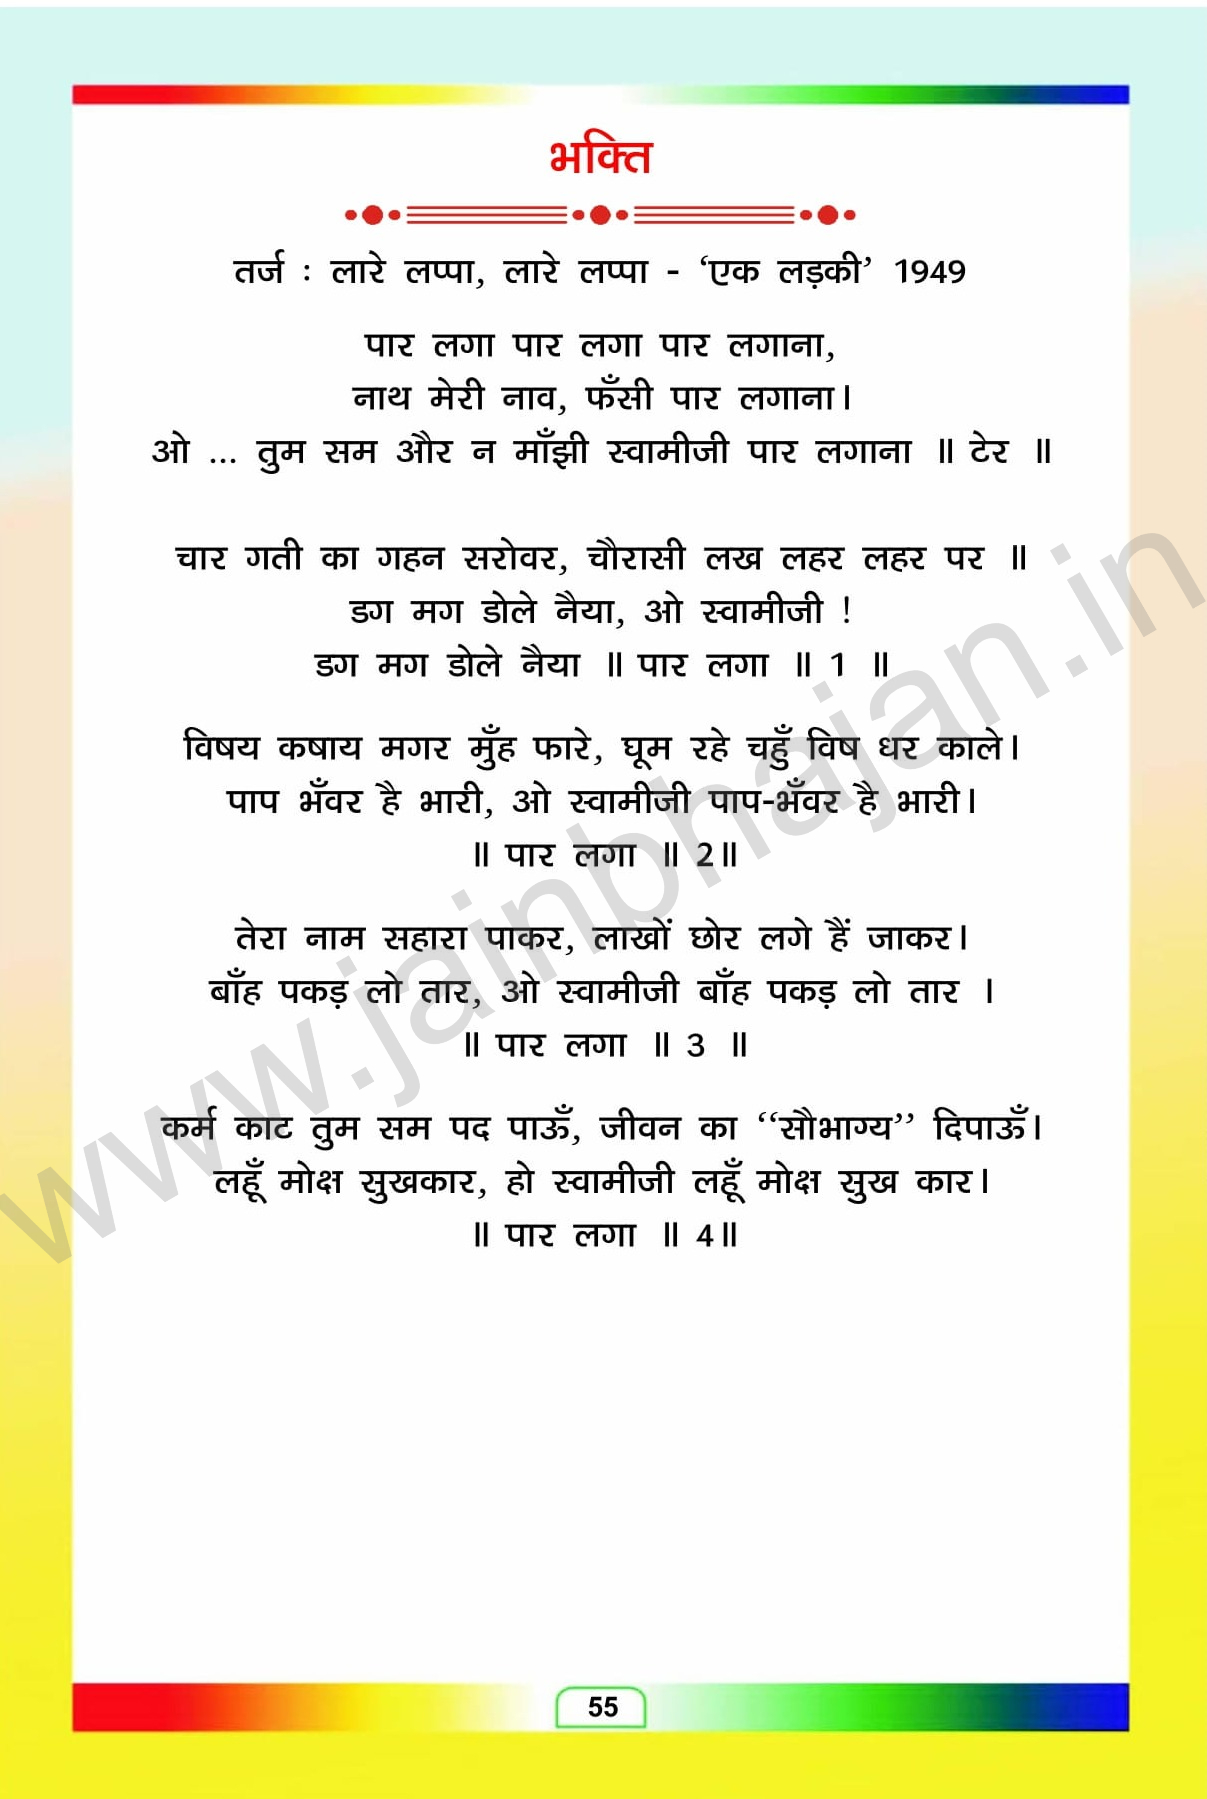 भक्ति
तर्ज : लारे लप्पा, लारे लप्पा - ‘एक लड़की’ 1949
पार लगा पार लगा पार लगाना,
नाथ मेरी नाव, फँसी पार लगाना।
ओ ... तुम सम और न माँझी स्वामीजी पार लगाना ॥ टेर ॥
चार गती का गहन सरोवर, चौरासी लख लहर लहर पर ॥
डग मग डोले नैया, ओ स्वामीजी !
डग मग डोले नैया ॥ पार लगा ॥ 1 ॥
विषय कषाय मगर मुँह फारे, घूम रहे चहुँ विष धर काले।
पाप भँवर है भारी, ओ स्वामीजी पाप-भँवर है भारी।
॥ पार लगा ॥ 2॥
तेरा नाम सहारा पाकर, लाखों छोर लगे हैं जाकर।
बाँह पकड़ लो तार, ओ स्वामीजी बाँह पकड़ लो तार ।
॥ पार लगा ॥ 3 ॥
कर्म काट तुम सम पद पाऊँ, जीवन का ‘‘सौभाग्य’’ दिपाऊँ।
लहूँ मोक्ष सुखकार, हो स्वामीजी लहूँ मोक्ष सुख कार।
॥ पार लगा ॥ 4॥
55
www.jainbhajan.in